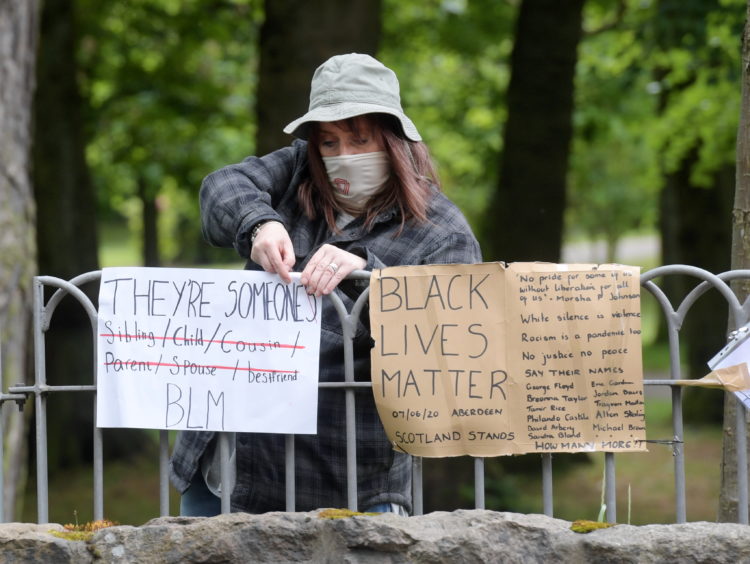 THEY'RE SOMEONES
Sibling/Child/Cousin/
Parent/Spouse/bestfriend
BLM
BLACK
LIVES
MATTER
07/06/20 ABERDEEN
SCOTLAND STANDS
"No pride for some of us
without liberation for all
of us". Marsha P Johnson
White silence is violence
Racism is a pandemic too
No justice no peace
SAY THEIR NAMES
George Floyd Eric Garner
Breonna Taylor Jordan Davis
Tamir Rice Trayvon
Philando Castile Alton
David Arbery Michael Brown
Sandra Bland HOW MANY MORE?!